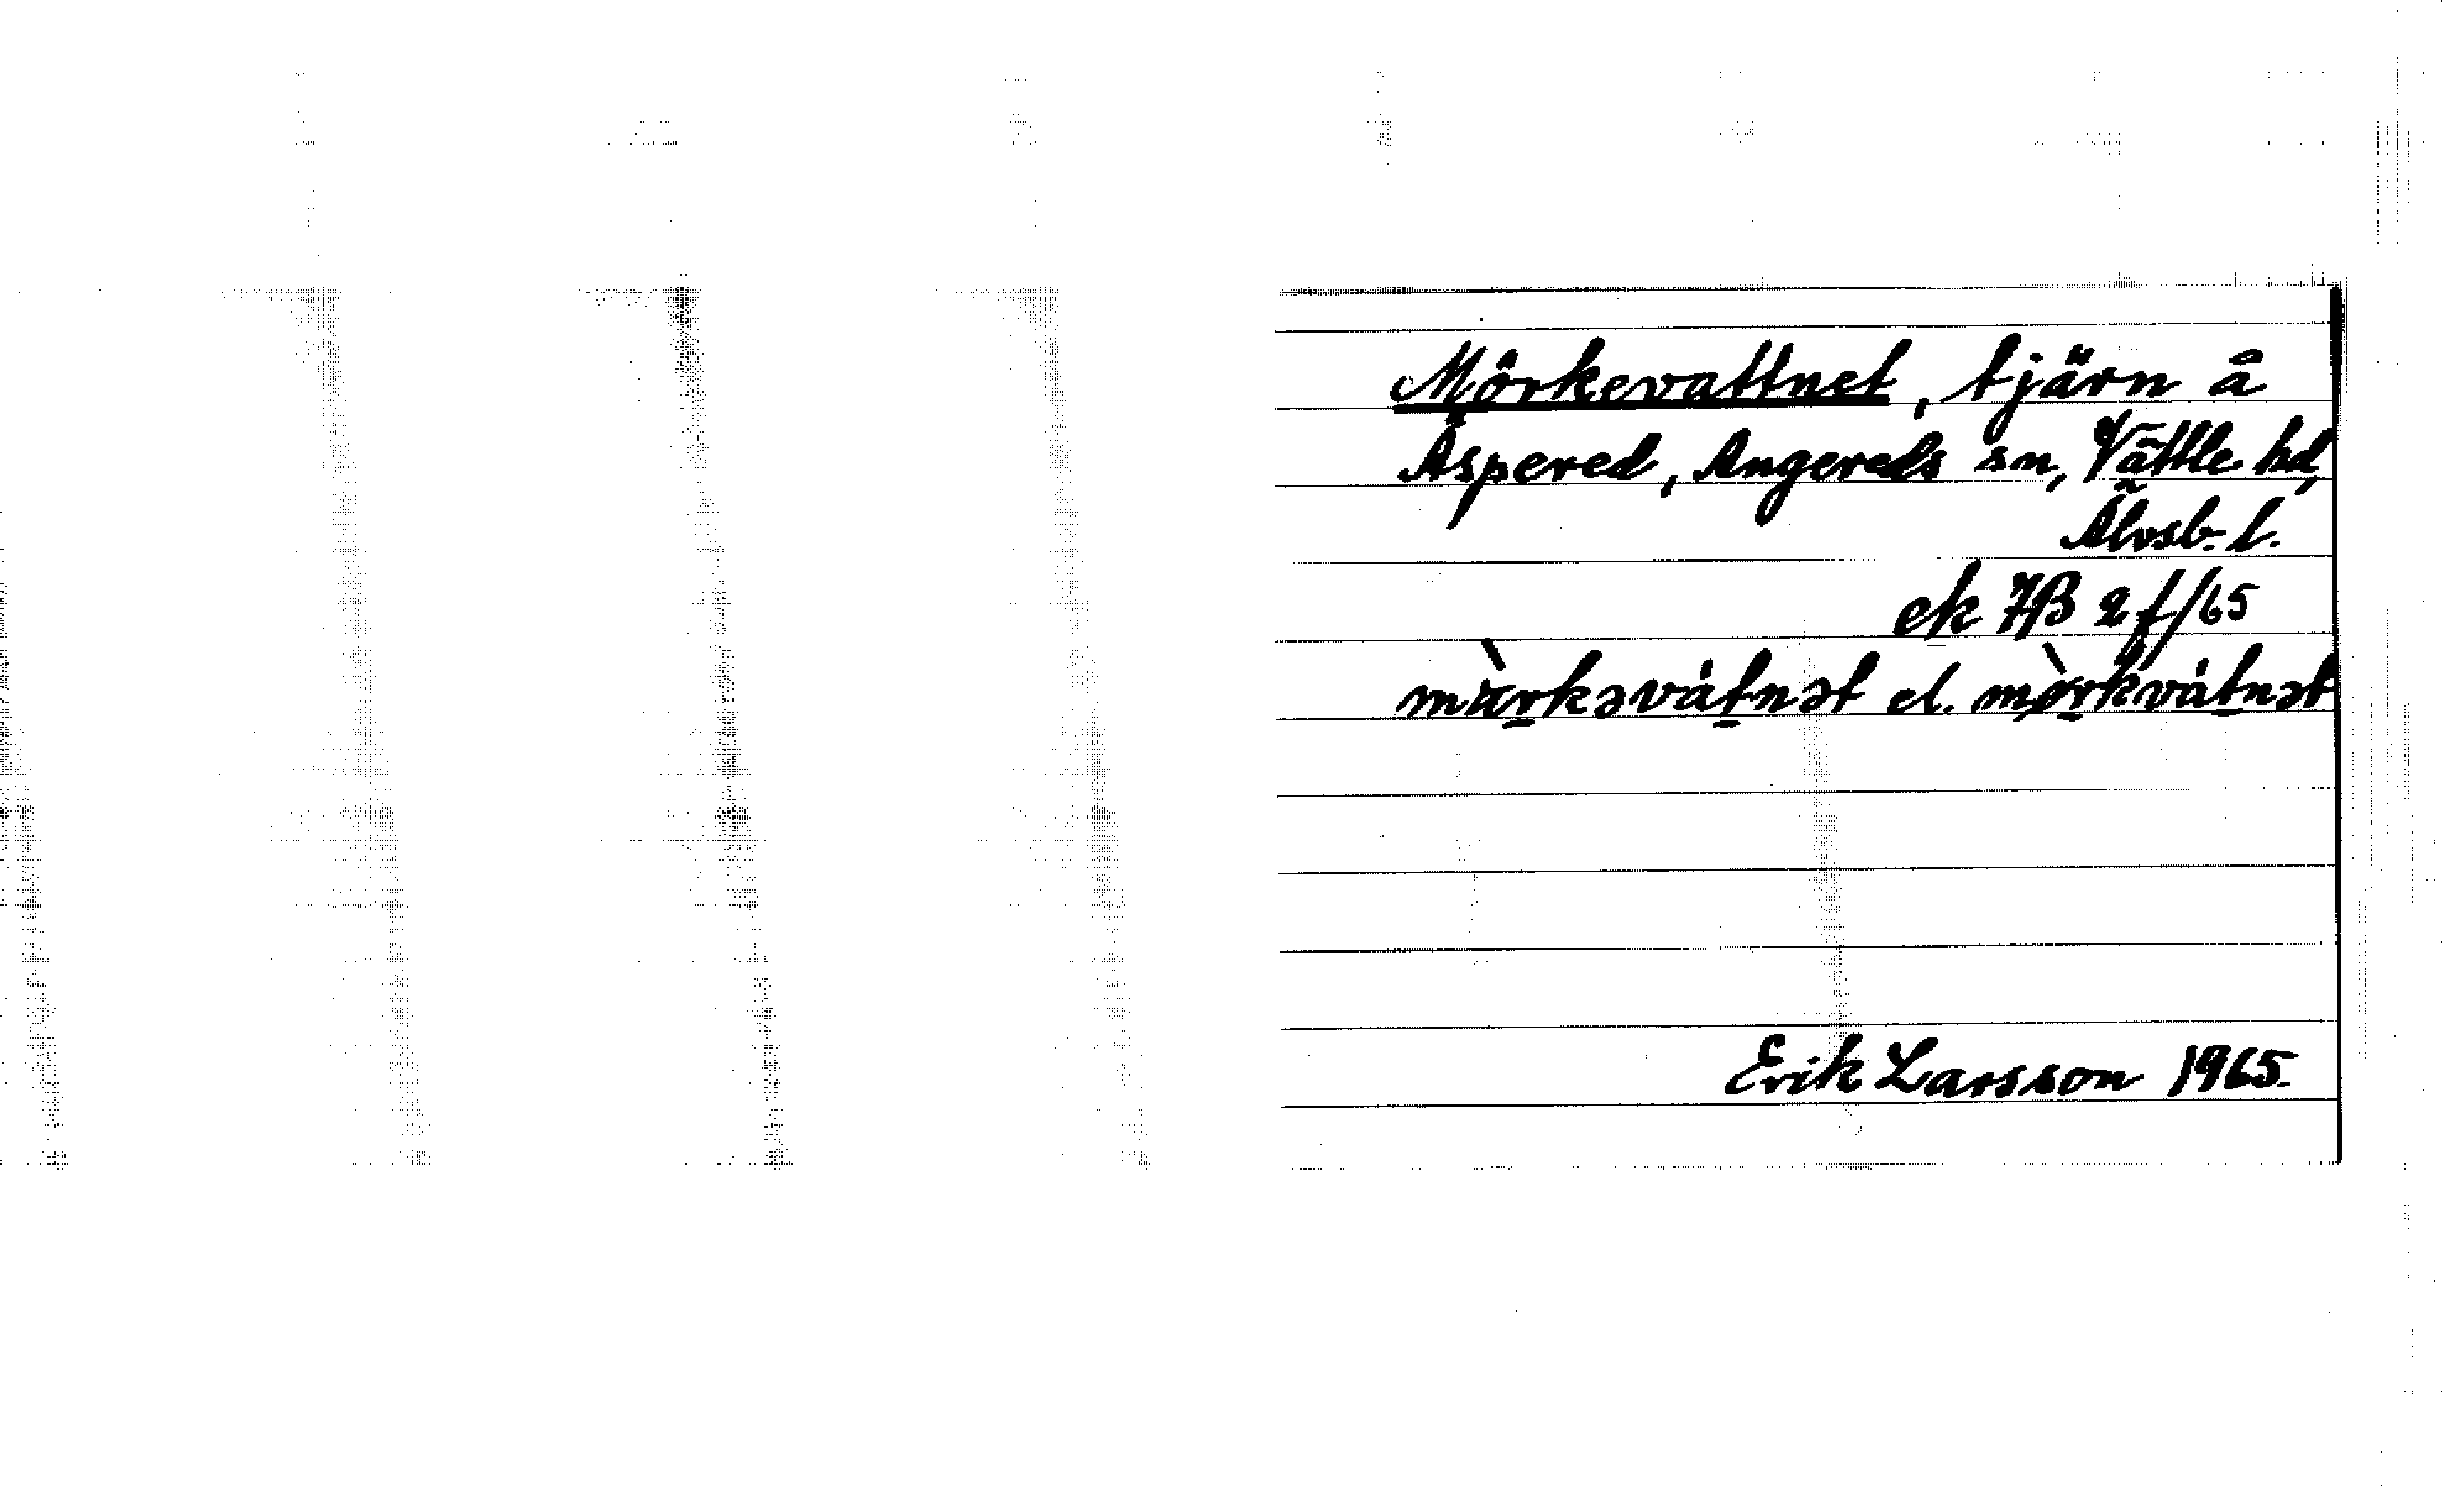 Mörkevattnet, tjärn å
Äspered, Angereds sn, Vättle hd,
Älvsb. l.
ek 7B 2f/65
màrkəvátnət el. mørkvátnət
Erik Larsson 1965.